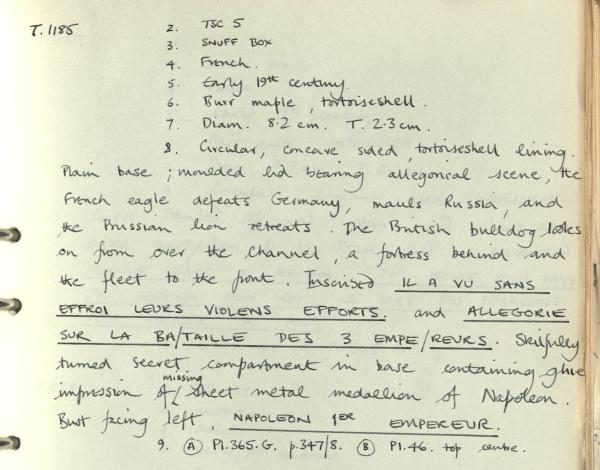 T.1185 2. TSC 5
3. SNUFF BOX
4. French.
5. Early 19th century.
6. Burr maple, tortoiseshell.
7. Diam. 8.2 cm. T. 2.3 cm.
8. Circular, concave sided, tortoiseshell lining.
Plain base; moulded lid bearing allegorical scene, the
French eagle defeats Germany, mauls Russia, and
the Prussian lion retreats. The British bulldog looks
on from over the Channel, a fortress behind and
the fleet to the front. Inscribed IL A VU SANS
EFFROI LEURS VIOLENS EFFORTS. and ALLEGORIE
SUR LA BA/TAILLE DES 3 EMPE/REURS. Skilfully
turned secret compartment in base containing glue
impression of/ missing sheet metal medallion of Napoleon.
Bust facing left, NAPOLEON 1ER EMPEREUR.
9. (A) Pl.365.G. p.347/8. (B) Pl.46. top centre.